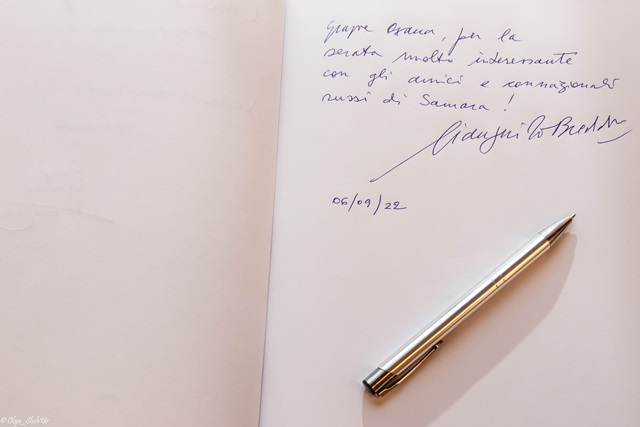 Grazie Oxana, per la
serata molto interessante
con gli amici e connazionali
russi di Samara!
06/09/22